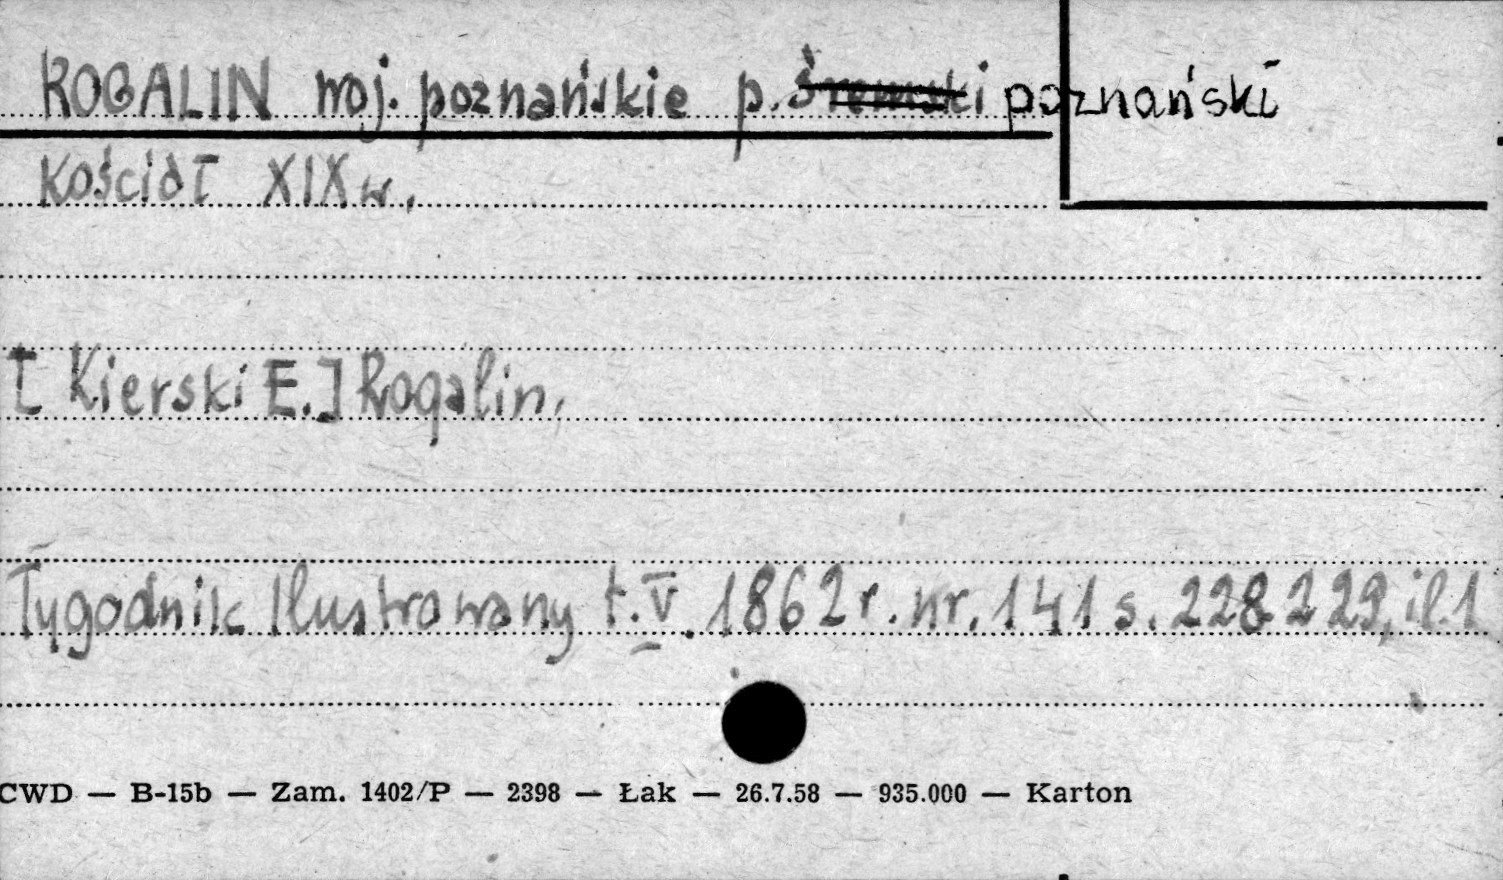 ROGALIN woj. poznańskie p. śremski poznański
Kościół XIX w.
[Kierski E.] Rogalin,
Tygodnik Ilustrowany t. V. 1862 r. nr. 141 s. 228 229, il. 1
CWD — B-15b — Zam. 1402/P — 2398 — Łak — 26.7.58 — 935.000 — Karton